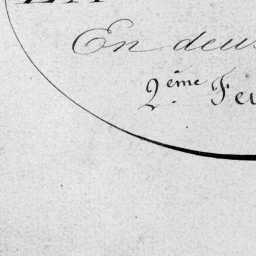 En deux
2.ème Feu